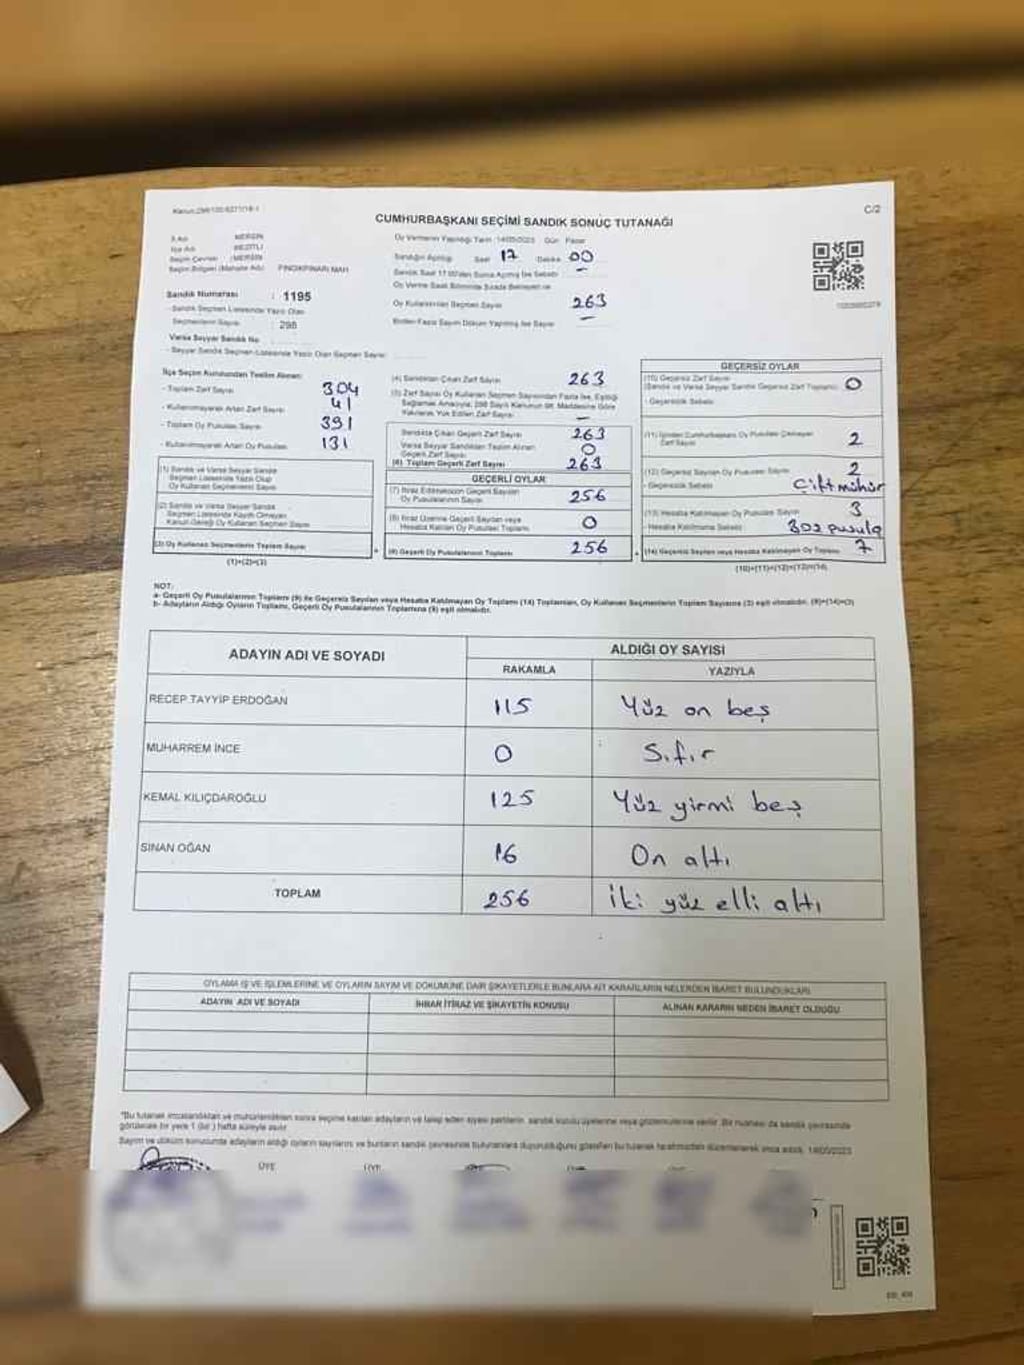 C/2
CUMHURBAŞKANI SEÇİMİ SANDIK SONUÇ TUTANAĞI
İli Adı : MERSİN
İlçe Adı : MEZİTLİ
Seçim Çevresi : MERSİN
Seçim Bölgesi (Mahalle Adı) : FINDIKPINARI MAH
Sandık Numarası : 1195
-Sandık Seçmen Listesinde Yazılı Olan
Seçmenlerin Sayısı : 298
Varsa Seyyar Sandık No
- Seyyar Sandık Seçmen Listesinde Yazılı Olan Seçmen Sayısı
Oy Vermenin Yapıldığı Tarih :14/05/2023 Gün Pazar
Sandığın Açıldığı Saat 17 Dakika 00
Sandık Saat 17.00'den Sonra Açılmış İse Sebebi –
Oy Verme Saati Bitiminde Sırada Bekleyen ve
Oy Kullandırılan Seçmen Sayısı 263
Birden Fazla Sayım Döküm Yapılmış İse Sayısı –
İlçe Seçim Kurulundan Teslim Alınan:
- Toplam Zarf Sayısı 304
- Kullanılmayarak Artan Zarf Sayısı 41
- Toplam Oy Pusulası Sayısı 391
- Kullanılmayarak Artan Oy Pusulası 131
(1) Sandık ve Varsa Seyyar Sandık
Seçmen Listesinde Yazılı Olup
Oy Kullanan Seçmenlerin Sayısı
(2) Sandık ve Varsa Seyyar Sandık
Seçmen Listesinde Kayıtlı Olmayan
Kanun Gereği Oy Kullanan Seçmen Sayısı
(3) Oy Kullanan Seçmenlerin Toplam Sayısı
(1)+(2)=(3)
(4) Sandıktan Çıkan Zarf Sayısı 263
(5) Zarf Sayısı Oy Kullanan Seçmen Sayısından Fazla İse, Eşitliği
Sağlamak Amacıyla, 298 Sayılı Kanunun 98. Maddesine Göre
Yakılarak Yok Edilen Zarf Sayısı –
Sandıkta Çıkan Geçerli Zarf Sayısı 263
Varsa Seyyar Sandıktan Teslim Alınan
Geçerli Zarf Sayısı 0
(6) Toplam Geçerli Zarf Sayısı 263
GEÇERLİ OYLAR
(7) İtiraz Edilmeksizin Geçerli Sayılan
Oy Pusulalarının Sayısı 256
(8) İtiraz Üzerine Geçerli Sayılan veya
Hesaba Katılan Oy Pusulası Toplamı 0
(9) Geçerli Oy Pusulalarının Toplamı 256
GEÇERSİZ OYLAR
(10) Geçersiz Zarf Sayısı
(Sandık ve Varsa Seyyar Sandık Geçersiz Zarf Toplamı) 0
- Geçersizlik Sebebi
(11) İçinden Cumhurbaşkanı Oy Pusulası Çıkmayan
Zarf Sayısı 2
(12) Geçersiz Sayılan Oy Pusulası Sayısı 2
- Geçersizlik Sebebi Çift mühür
(13) Hesaba Katılmayan Oy Pusulası Sayısı 3
Hesaba Katılmama Sebebi
(14) Geçersiz Sayılan veya Hesaba Katılmayan Oy Toplamı 7
(10)+(11)+(12)+(13)=(14)
NOT:
a- Geçerli Oy Pusulalarının Toplamı (9) ile Geçersiz Sayılan veya Hesaba Katılmayan Oy Toplamı (14) Toplamları, Oy Kullanan Seçmenlerin Toplam Sayısına (3) eşit olmalıdır. (9)+(14)=(3)
b- Adayların Aldığı Oyların Toplamı, Geçerli Oy Pusulalarının Toplamına (9) eşit olmalıdır.
ADAYIN ADI VE SOYADI ALDIĞI OY SAYISI
RAKAMLA YAZIYLA
RECEP TAYYİP ERDOĞAN 115 Yüz on beş
MUHARREM İNCE 0 Sıfır
KEMAL KILIÇDAROĞLU 125 Yüz yirmi beş
SİNAN OĞAN 16 On altı
TOPLAM 256 İki yüz elli altı
OYLAMA İŞ VE İŞLEMLERİNE VE OYLARIN SAYIM VE DÖKÜMÜNE DAİR ŞİKAYETLERLE BUNLARA AİT KARARLARIN NELERDEN İBARET BULUNDUKLARI
ADAYIN ADI VE SOYADI İHBAR İTİRAZ VE ŞİKAYETİN KONUSU ALINAN KARARIN NEDEN İBARET OLDUĞU
*Bu tutanak imzalandıktan ve mühürlendikten sonra seçime katılan adayların ve talep eden siyasi partilerin sandık kurulu üyelerine veya gözlemcilerine verilir. Bir nüshası da sandık çevresinde
görülebilir bir yere 1 (bir) hafta süreyle asılır.
Sayım ve döküm sonucunda adayların aldığı oyların sayılarını ve bunların sandık çevresinde bulunanlara duyurulduğunu gösteren bu tutanak tarafımızdan düzenlenerek imza edildi. 14/05/2023
ÜYE ÜYE